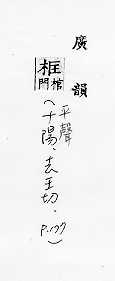 廣韻
框 棺門
(平聲
十陽‧去王切‧
P.177)